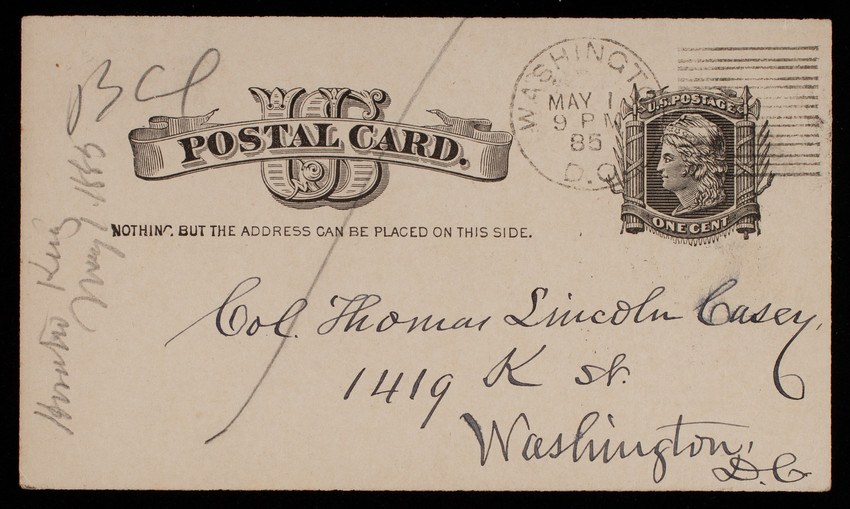 B Cl
US
POSTAL CARD.
NOTHING BUT THE ADDRESS CAN BE PLACED ON THIS SIDE.
WASHINGT
MAY 1
9 PM
85
D.C.
U.S. POSTAGE
ONE CENT
Col. Thomas Lincoln Casey,
1419 K St.
Washington,
D.C.
Horatio King
May 1, 1885